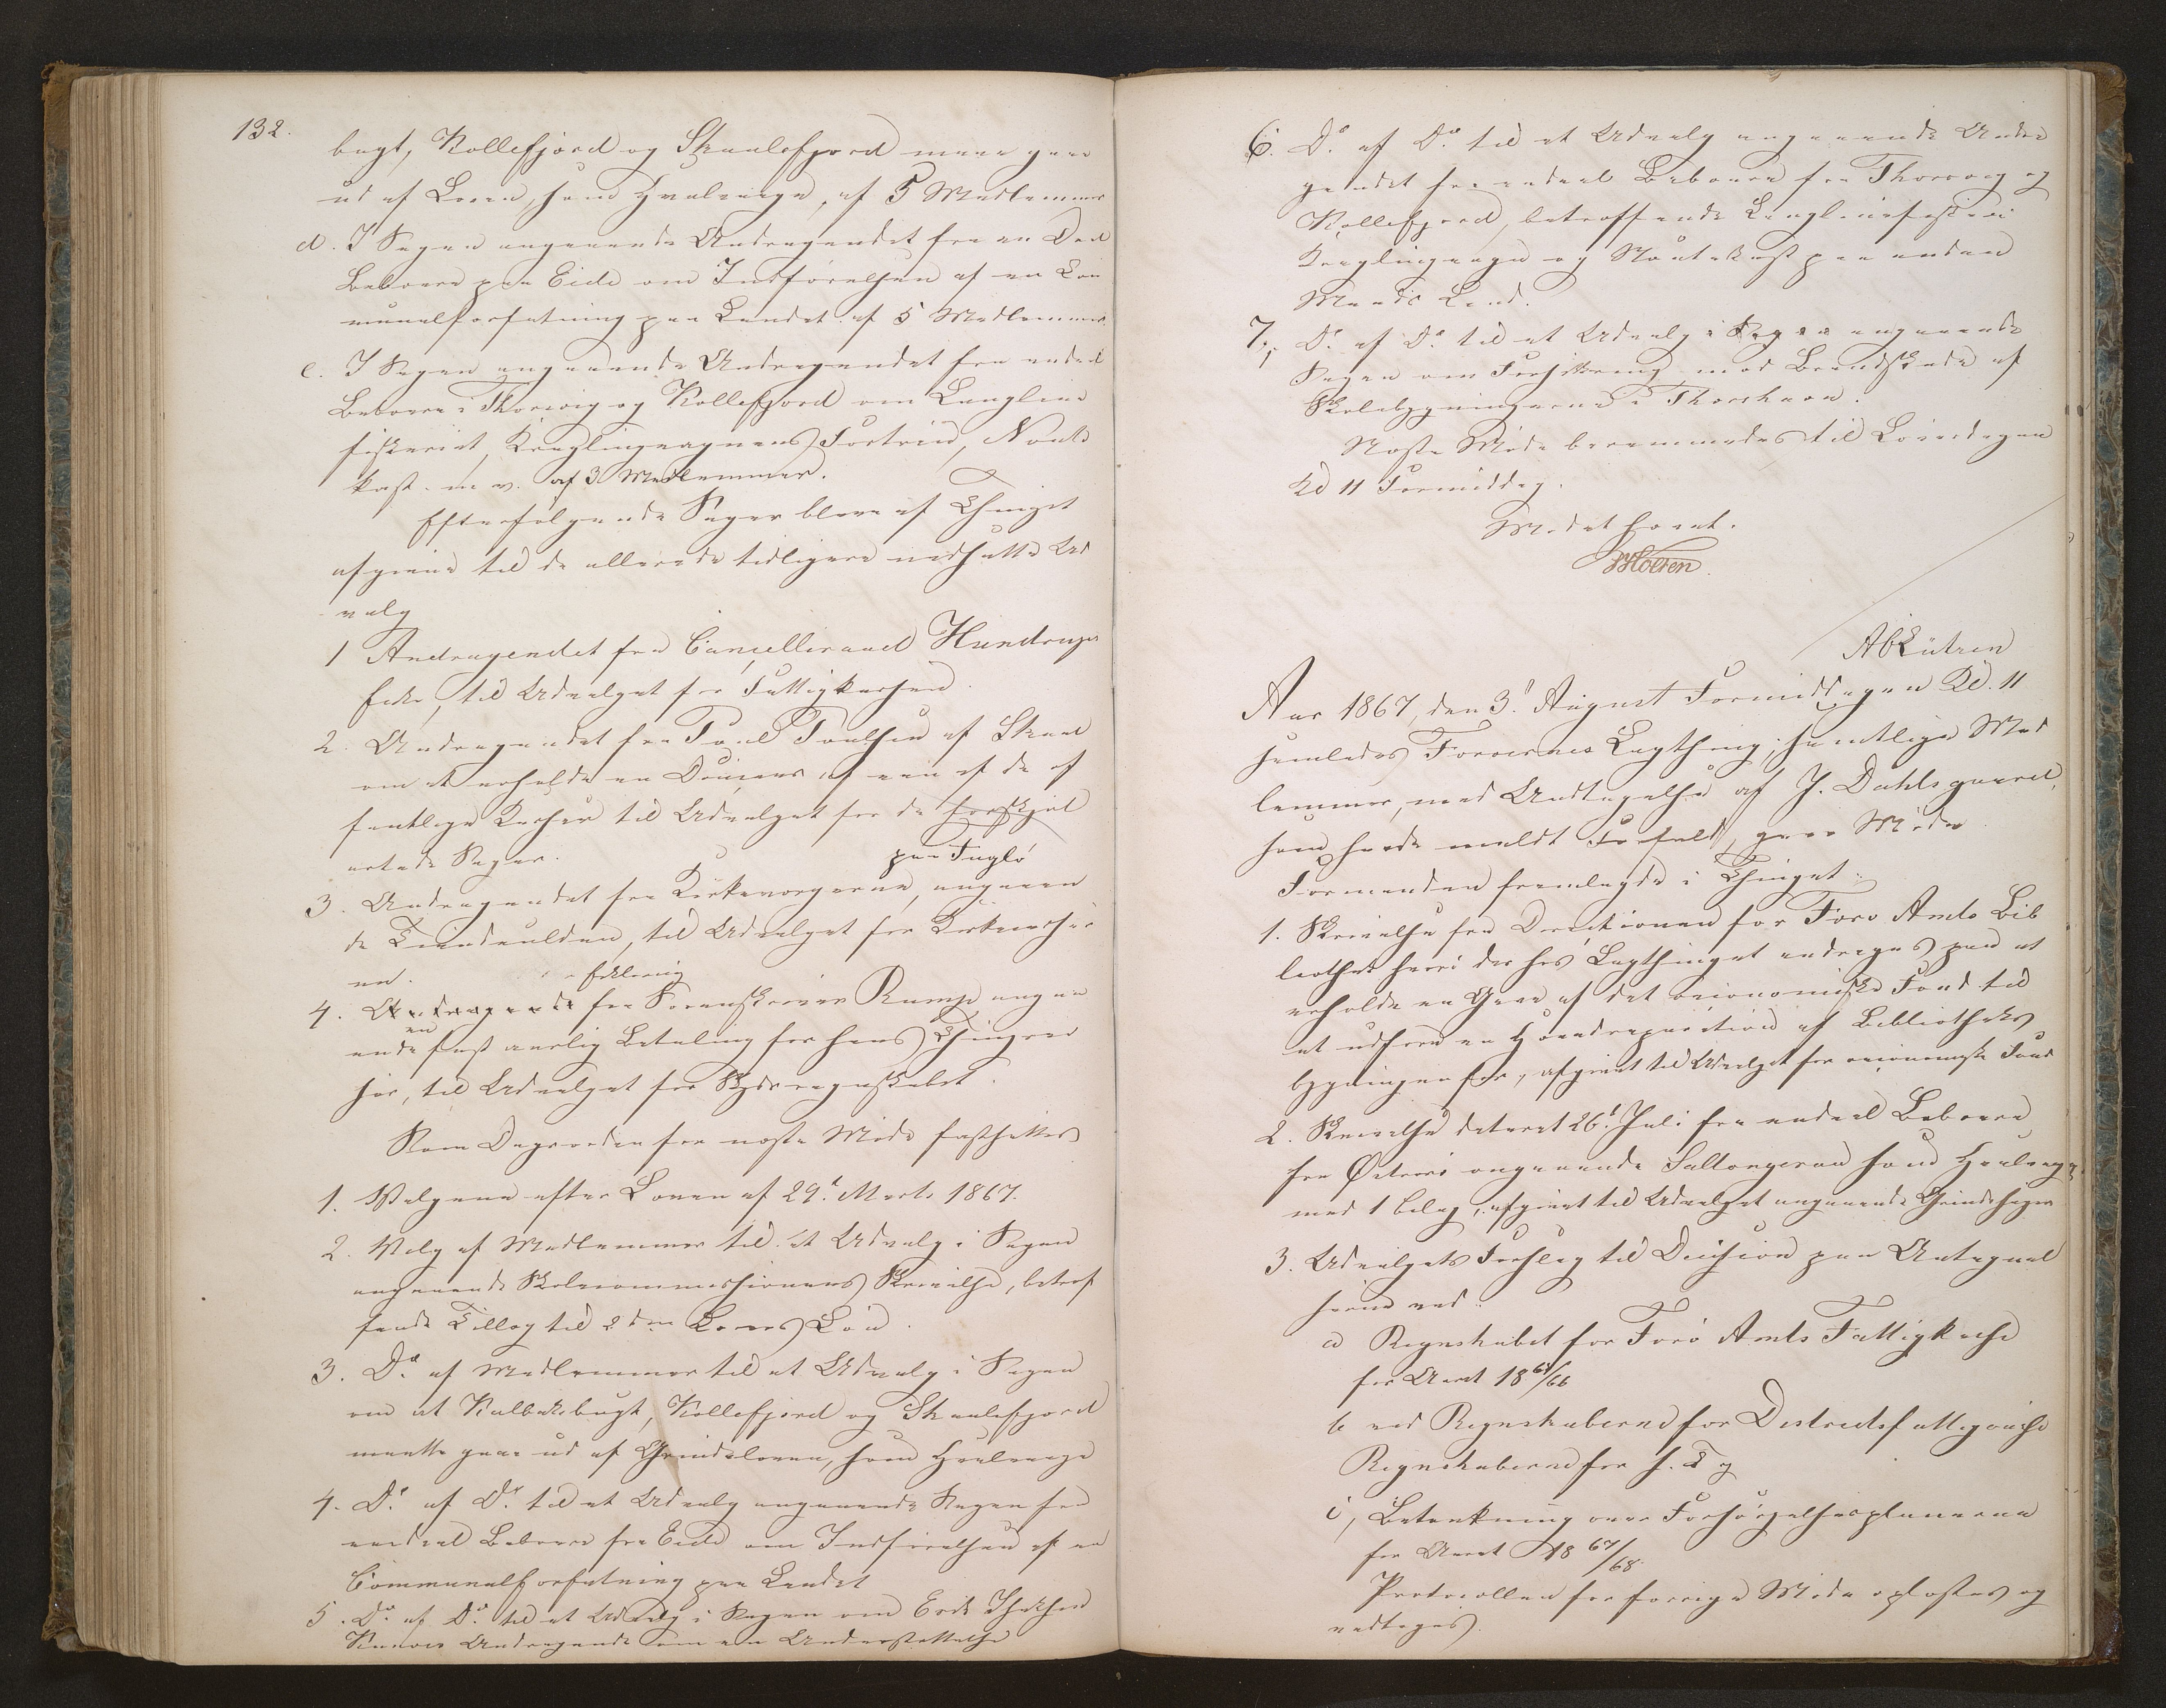 132.
bugt, Kollefjord og Skaalefjord maa gaae
ud af Loven, som Hvalvaage, af 5 Medlemmer
d. I Sagen angaaende Andragendet fra en Deel
Beboere paa Eide om Indførelsen af en Com
munalforfatning paa Landet af 5 Medlemmer.
e. I Sagen angaaende Andragendet fra endeel
Beboere i Thorsvig og Kollefjord om Langline
fiskeriet, Kræklingeagnens Fortrin, Nout
kast m. v. af 3 Medlemmer.
Efterfølgende Sager bleve af Thinget
afgivne til de allerede tidligere nedsatte Ud
valg
1 Andragendet fra Cancelliraad
til Udvalget for Fattigkassen.
2. Andragendet fra Poul Poulsen af Skaal
om at erholde en Douceur af een af de of
fentlige Kasser til Udvalget for de forskjel
artede Sager.
paa Fuglø
3. Andragendet fra Kirkeværgerne, angaaen
de Tiendeulden, til Udvalget for Kirkevæse
net.
Erklæring
4. Andragende fra Sorenskriver Rump, angaa
en
ende fast aarlig Betaling for hans Thingrei
ser, til Udvalget for Skydsregnskabet.
Som Dagsorden for næste Møde fastsattes
1. Valgene efter Loven af 29de Marts 1867.
2. Valg af Medlemmer til et Udvalg i Sagen
angaaende Skolecommissionens Skrivelse, betræf
fende Tillæg til 2den Lærers Løn.
3. Do af Medlemmer til et Udvalg i Sagen
om at Kalbaksbugt, Kollefjord og Skaalefjord
maatte gaae ud af Grindeloven, som Hvalvaage
4. Do af Do til et Udvalg angaaende Sagen fra
endeel Beboere fra Eide om Indførelsen af en
Communalforfatning paa Landet
5. Do af Do til et Udvalg i Sagen om
Andragende om en Understøttelse
6. Do af Do til et Udvalg angaaende Andra
gendet fra endeel Beboere fra Thorsvig og
Kollefjord, betræffende Langlinefiskeri
Kræklingeagn og Noutekast paa anden
Mands Land.
7. Do af Do til et Udvalg i Sagen angaaende
Sagen om Forsikring mod Brandskade af
Skolebygningerne i Thorshavn.
Næste Møde berammedes til Løverdagen
Kl 11 Formiddag.
Mødet hævet.
HHolten
Aar 1867, den 3die August Formiddagen Kl. 11
samledes Færøernes Lagthing; samtlige Med
lemmer, med Undtagelse af J. Dahlsgaard,
som havde meldt Forfald, gave Møde
Formanden fremlagde i Thinget:
1. Skrivelse fra Directionen for Færø Amts Bib
liothek hvori der hos Lagthinget andrages paa at
erholde en Gave af det oeconomiske Fond til
at udføre en Hovedreparation af Bibliotheks
bygningen for, afgivet til Udvalget for oeconomiske Fond
2. Skrivelse dateret 26de Juli fra endeel Beboere
fra Øeteraa angaaende Saltangeraa som Hvalvaage
med 1 Bilag, afgivet til Udvalget angaaende Grindesagen
3. Udvalgets Forslag til Decision paa Antegnel
serne ved:
a Regnskabet for Færø Amts Fattigkasse
for Aaret 1865/66
b ved Regnskaberne for Districtsfattigcasse
Regnskaberne for s. T. og
c, Betænkning over Forsørgelsesplanerne
for Aaret 1867/68.
Protocollen for forrige Møde oplæstes og
vedtoges.